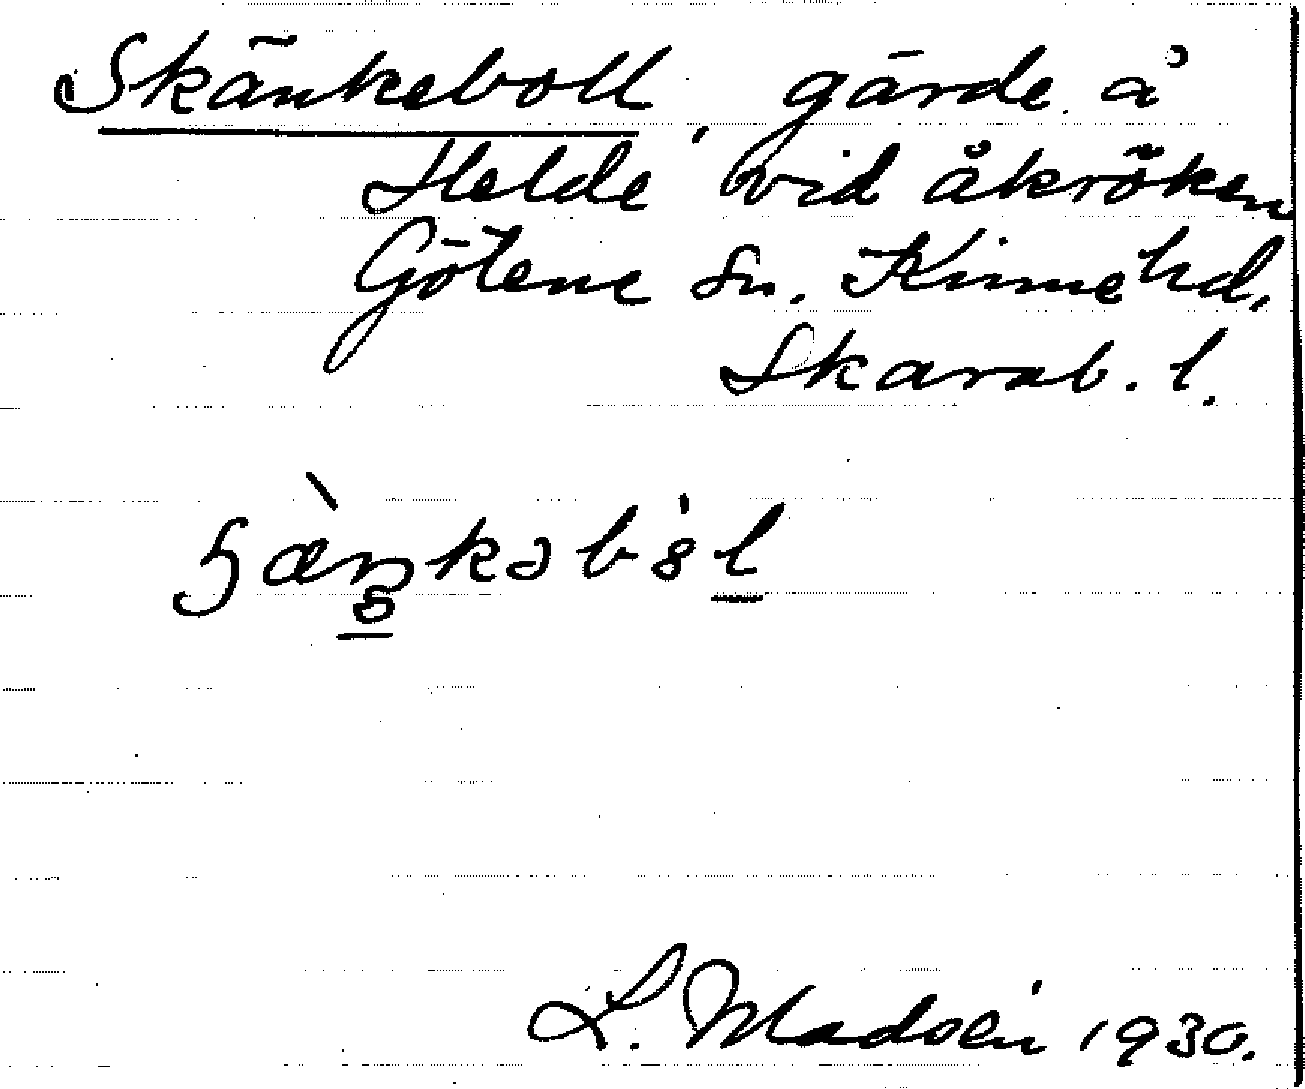 Skänkeboll, gärde å
Helde vid åkröken
Götene sn. Kinne hd,
Skarab. l.
L. Madsén 1930.